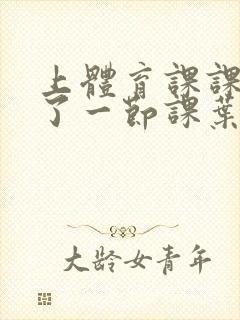 上體育課課
了一節課葉
大龄女青年